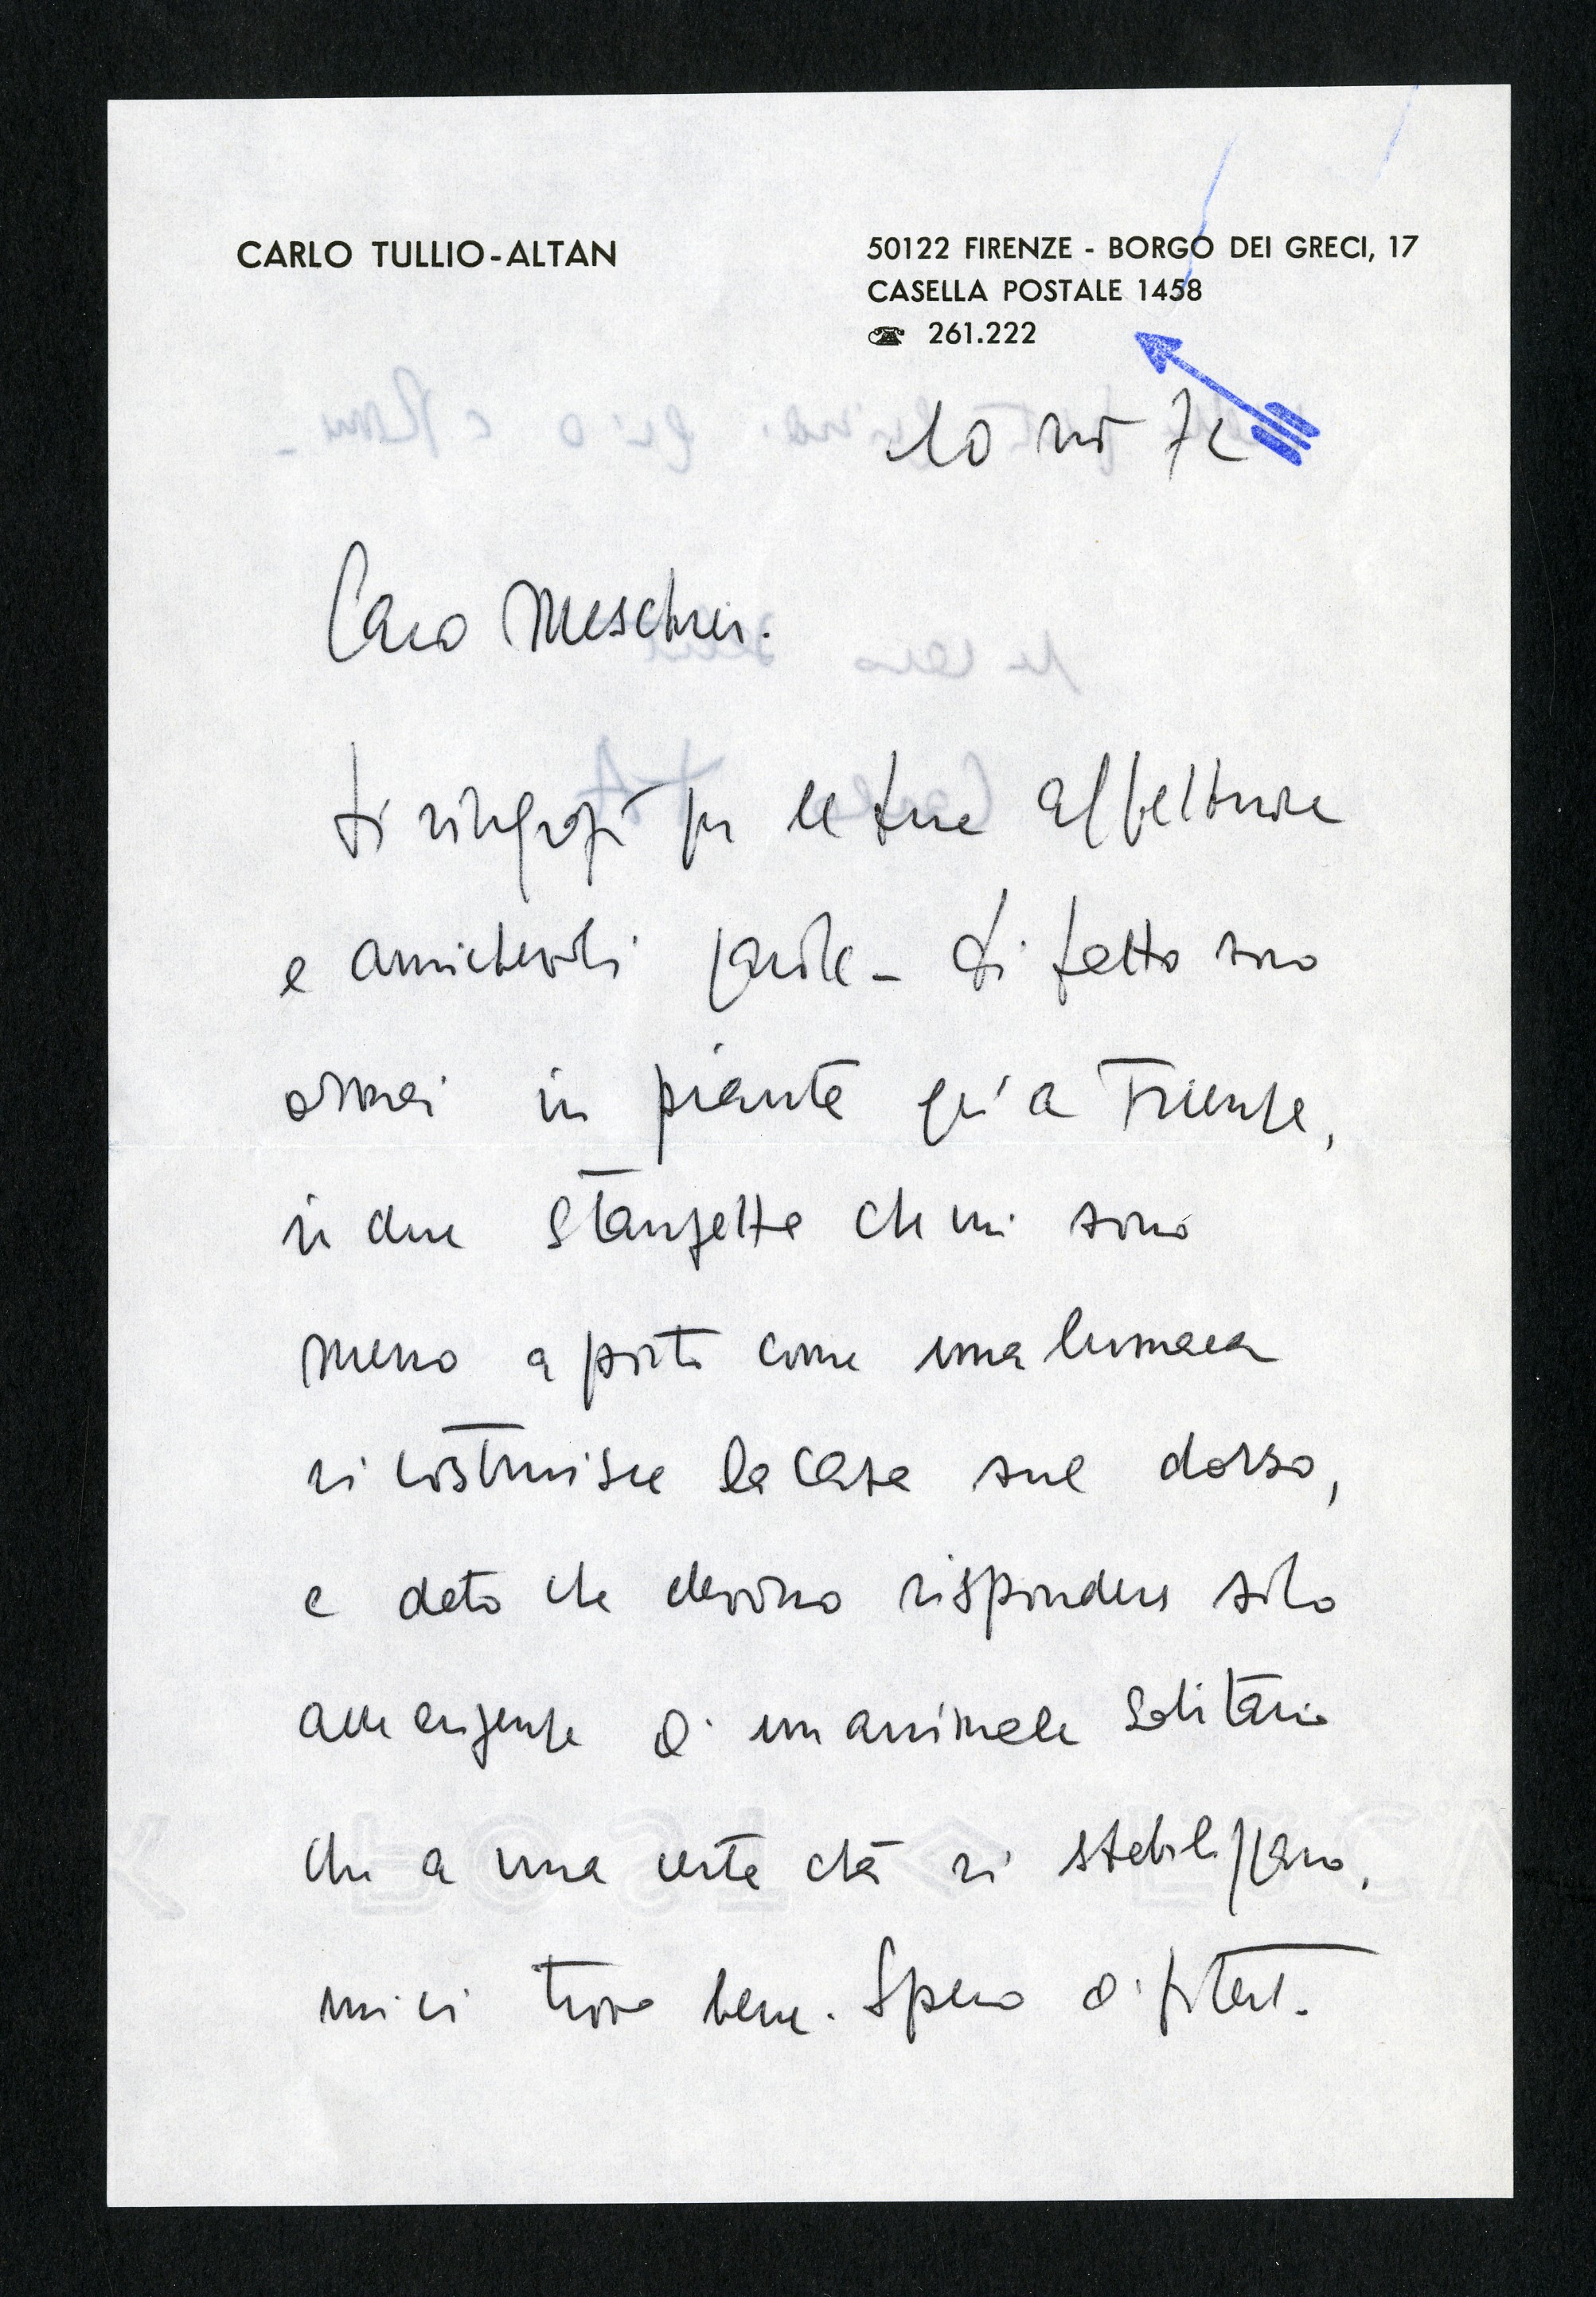 CARLO TULLIO-ALTAN
50122 FIRENZE - BORGO DEI GRECI, 17
CASELLA POSTALE 1458
☎ 261.222
10 nov 72
Caro Meschini.
ti ringrazio per le tue affettuose
e amichevoli parole - di fatto sono
ormai in pianta qui a Firenze,
in due stanzette che mi sono
messo a posto come una lumaca
si costruisce la casa sul dorso,
e dato che devono rispondere solo
alle esigenze di un animale solitario
che a una certa età si stabilizzano,
mi ci trovo bene. Spero di poter.